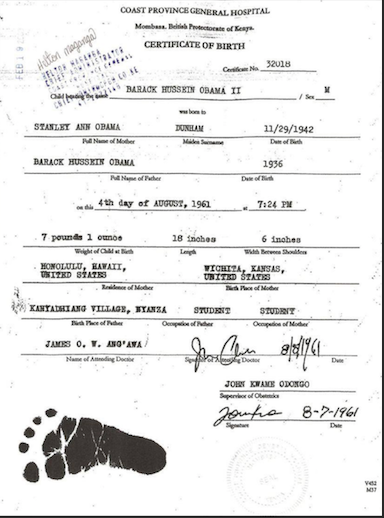 COAST PROVINCE GENERAL HOSPITAL
Mombasa, British Protectorate of Kenya.
CERTIFICATE OF BIRTH
Certificate No. 32018
BARACK HUSSEIN OBAMA II / Sex M
was born to
STANLEY ANN OBAMA DUNHAM 11/29/1942
Full Name of Mother Maiden Surname Date of Birth
BARACK HUSSEIN OBAMA 1936
Full Name of Father Date of Birth
on this 4th day of AUGUST, 1961 at 7:24 PM
7 pounds 1 ounce 18 inches 6 inches
Weight of Child at Birth Length Width Between Shoulders
HONOLULU, HAWAII, WICHITA, KANSAS,
UNITED STATES UNITED STATES
Residence of Mother Birth Place of Mother
KANYADHIANG VILLAGE, NYANZA STUDENT STUDENT
Birth Place of Father Occupation of Father Occupation of Mother
JAMES O. W. ANG'AWA 8/8/1961
Name of Attending Doctor Signature of Attending Doctor Date
JOHN KWAME ODONGO
Supervisor of Obstetrics
8-7-1961
Signature Date
V452
M37